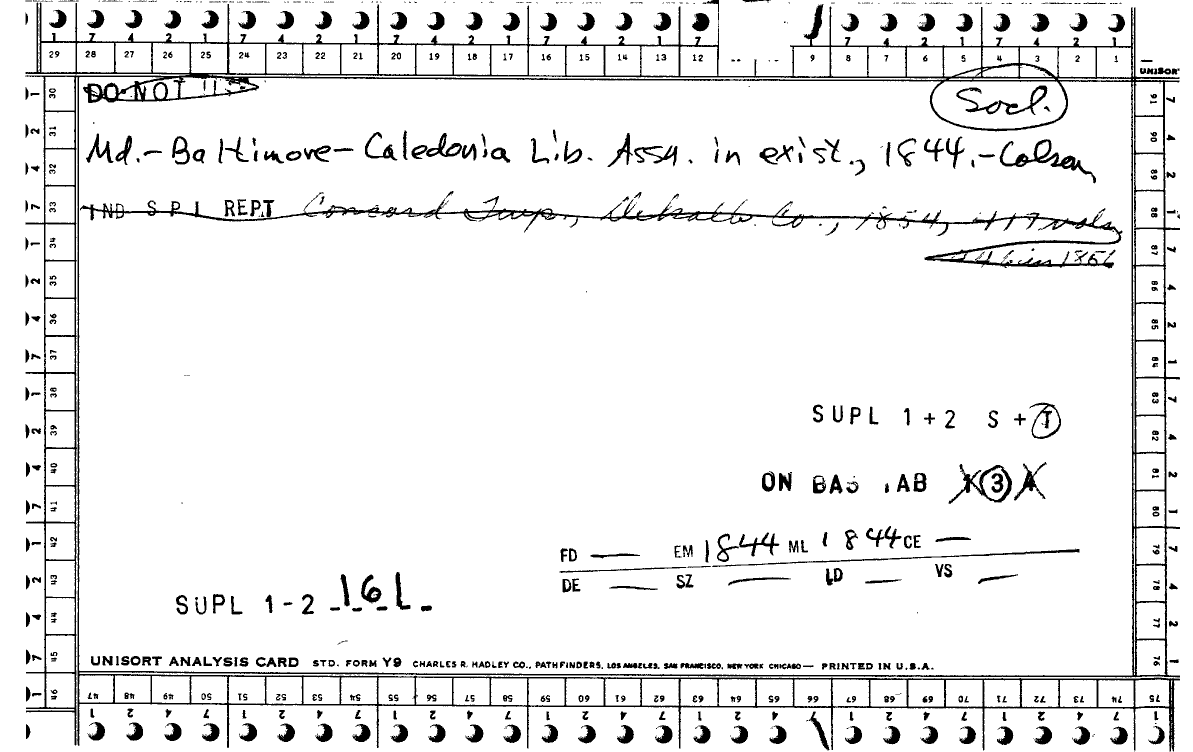 1 7 4 2 1 7 4 2 1 7 4 2 1 7 4 2 1 7 8 7 4 2 1 7 4 2 1
29 28 27 26 25 24 23 22 21 20 19 18 17 16 15 14 13 12 9 8 7 6 5 4 3 2 1
UNISORT
DO NOT
Socl.
Md.-Baltimore-Caledonia Lib. Assn. in exist., 1844.-Colson
IND S P I REPT Concord Twp., Dekalb Co., 1854, 417 vols
446 in 1856
SUPL 1+2 S+T
ON BAS TAB 1 3 4
FD — EM 1844 ML 1844 CE —
DE — SZ — LD — VS —
SUPL 1-2 161
UNISORT ANALYSIS CARD STD. FORM Y9 CHARLES R. HADLEY CO., PATHFINDERS, LOS ANGELES, SAN FRANCISCO, NEW YORK CHICAGO — PRINTED IN U.S.A.
47 48 49 50 51 52 53 54 55 56 57 58 59 60 61 62 63 64 65 66 67 68 69 70 71 72 73 74 75
30 31 32 33 34 35 36 37 38 39 40 41 42 43 44 45 46
91 90 89 88 87 86 85 84 83 82 81 80 79 78 77 76